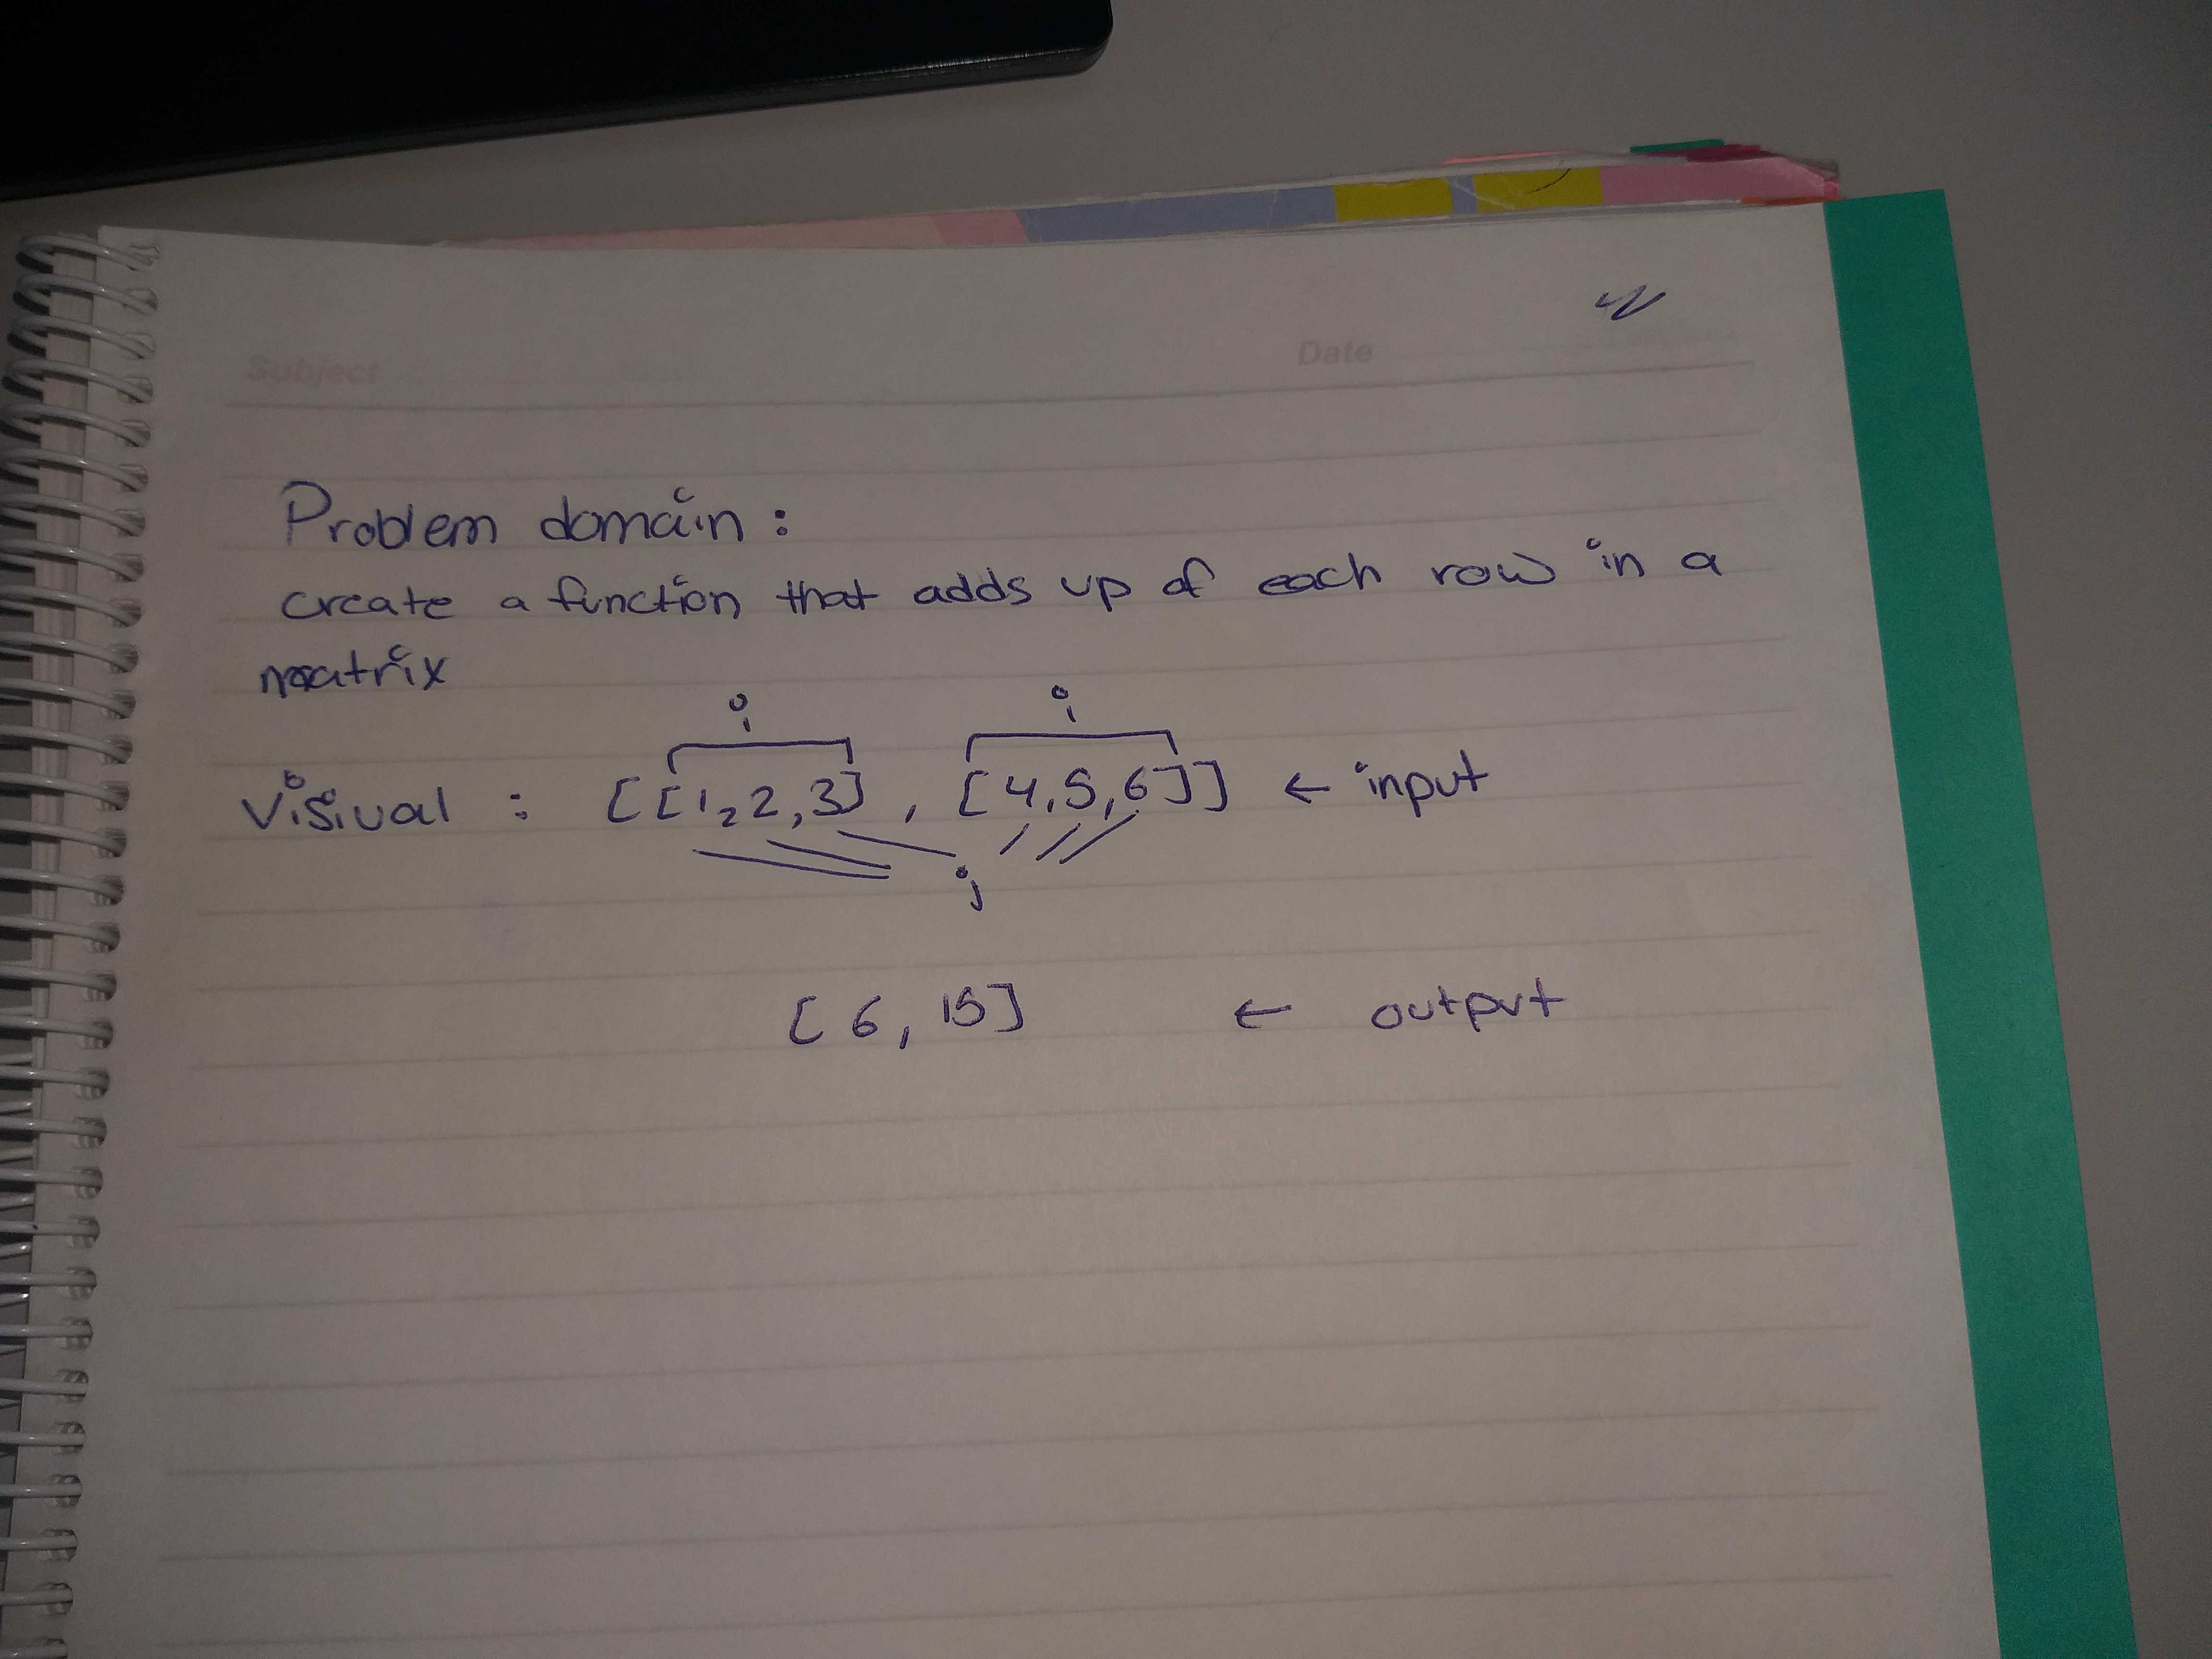 Subject
Date
Problem domain :
create a function that adds up of each row in a
matrix
i i
Visiual : [[1,2,3] , [4,5,6]] ← input
j
[6, 15] ← output